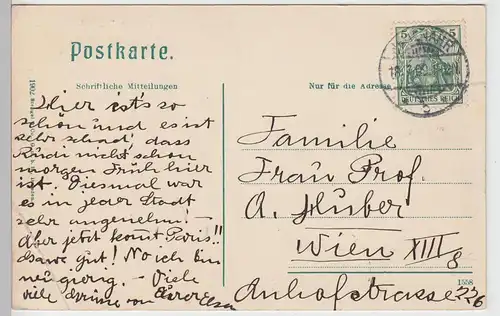 Postkarte.
5 5
DEUTSCHES REICH
Schriftliche Mitteilungen
Nur für die Adresse
Hier ist's so
schön und es ist
sehr schad, dass
Rudi nicht schon
morgen Früh hier
ist. Diesmal war
es in jeder Stadt
sehr angenehm! —
Aber jetzt komt Paris!!
gut! No ich bin
neugierig. — Viele
viele von
Familie
Frau Prof.
A. Huber
Wien XIII/8
Anhofstrasse 226
1558